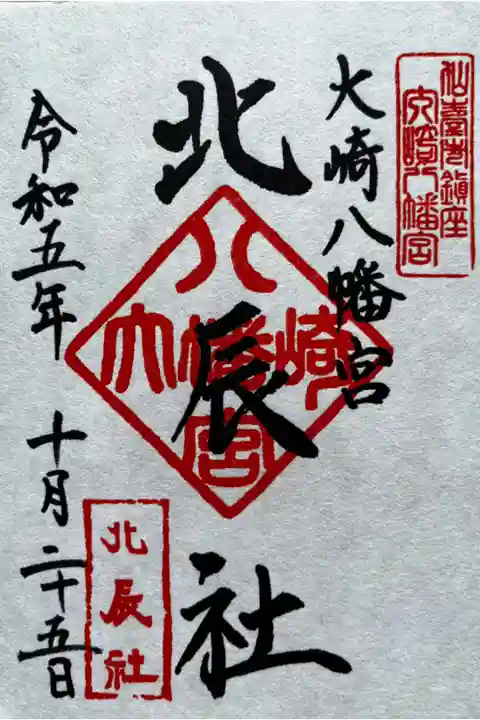 仙臺市鎮座
大崎八幡宮
大崎八幡宮
北辰社
八
大幡崎
宮
令和五年 十月二十五日
北辰社